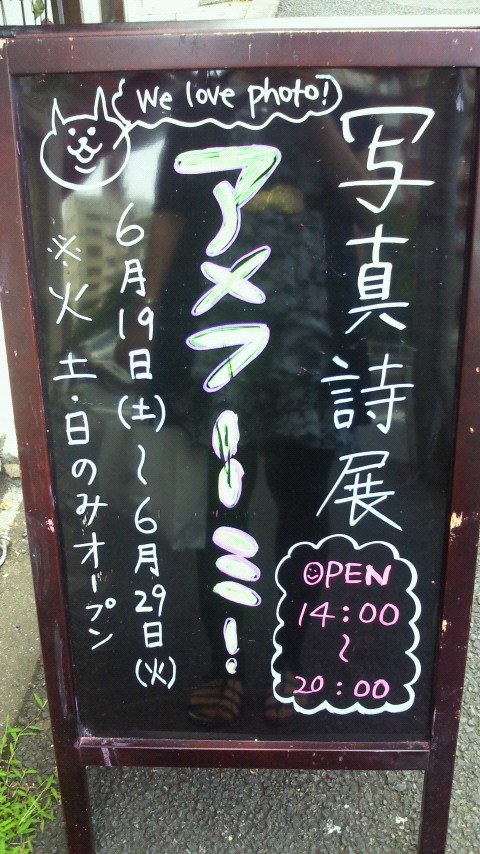 We love photo!
写真詩展
アメフーミー!
6月19日(土)〜6月29日(火)
※火 土・日のみオープン
OPEN
14:00
〜
20:00